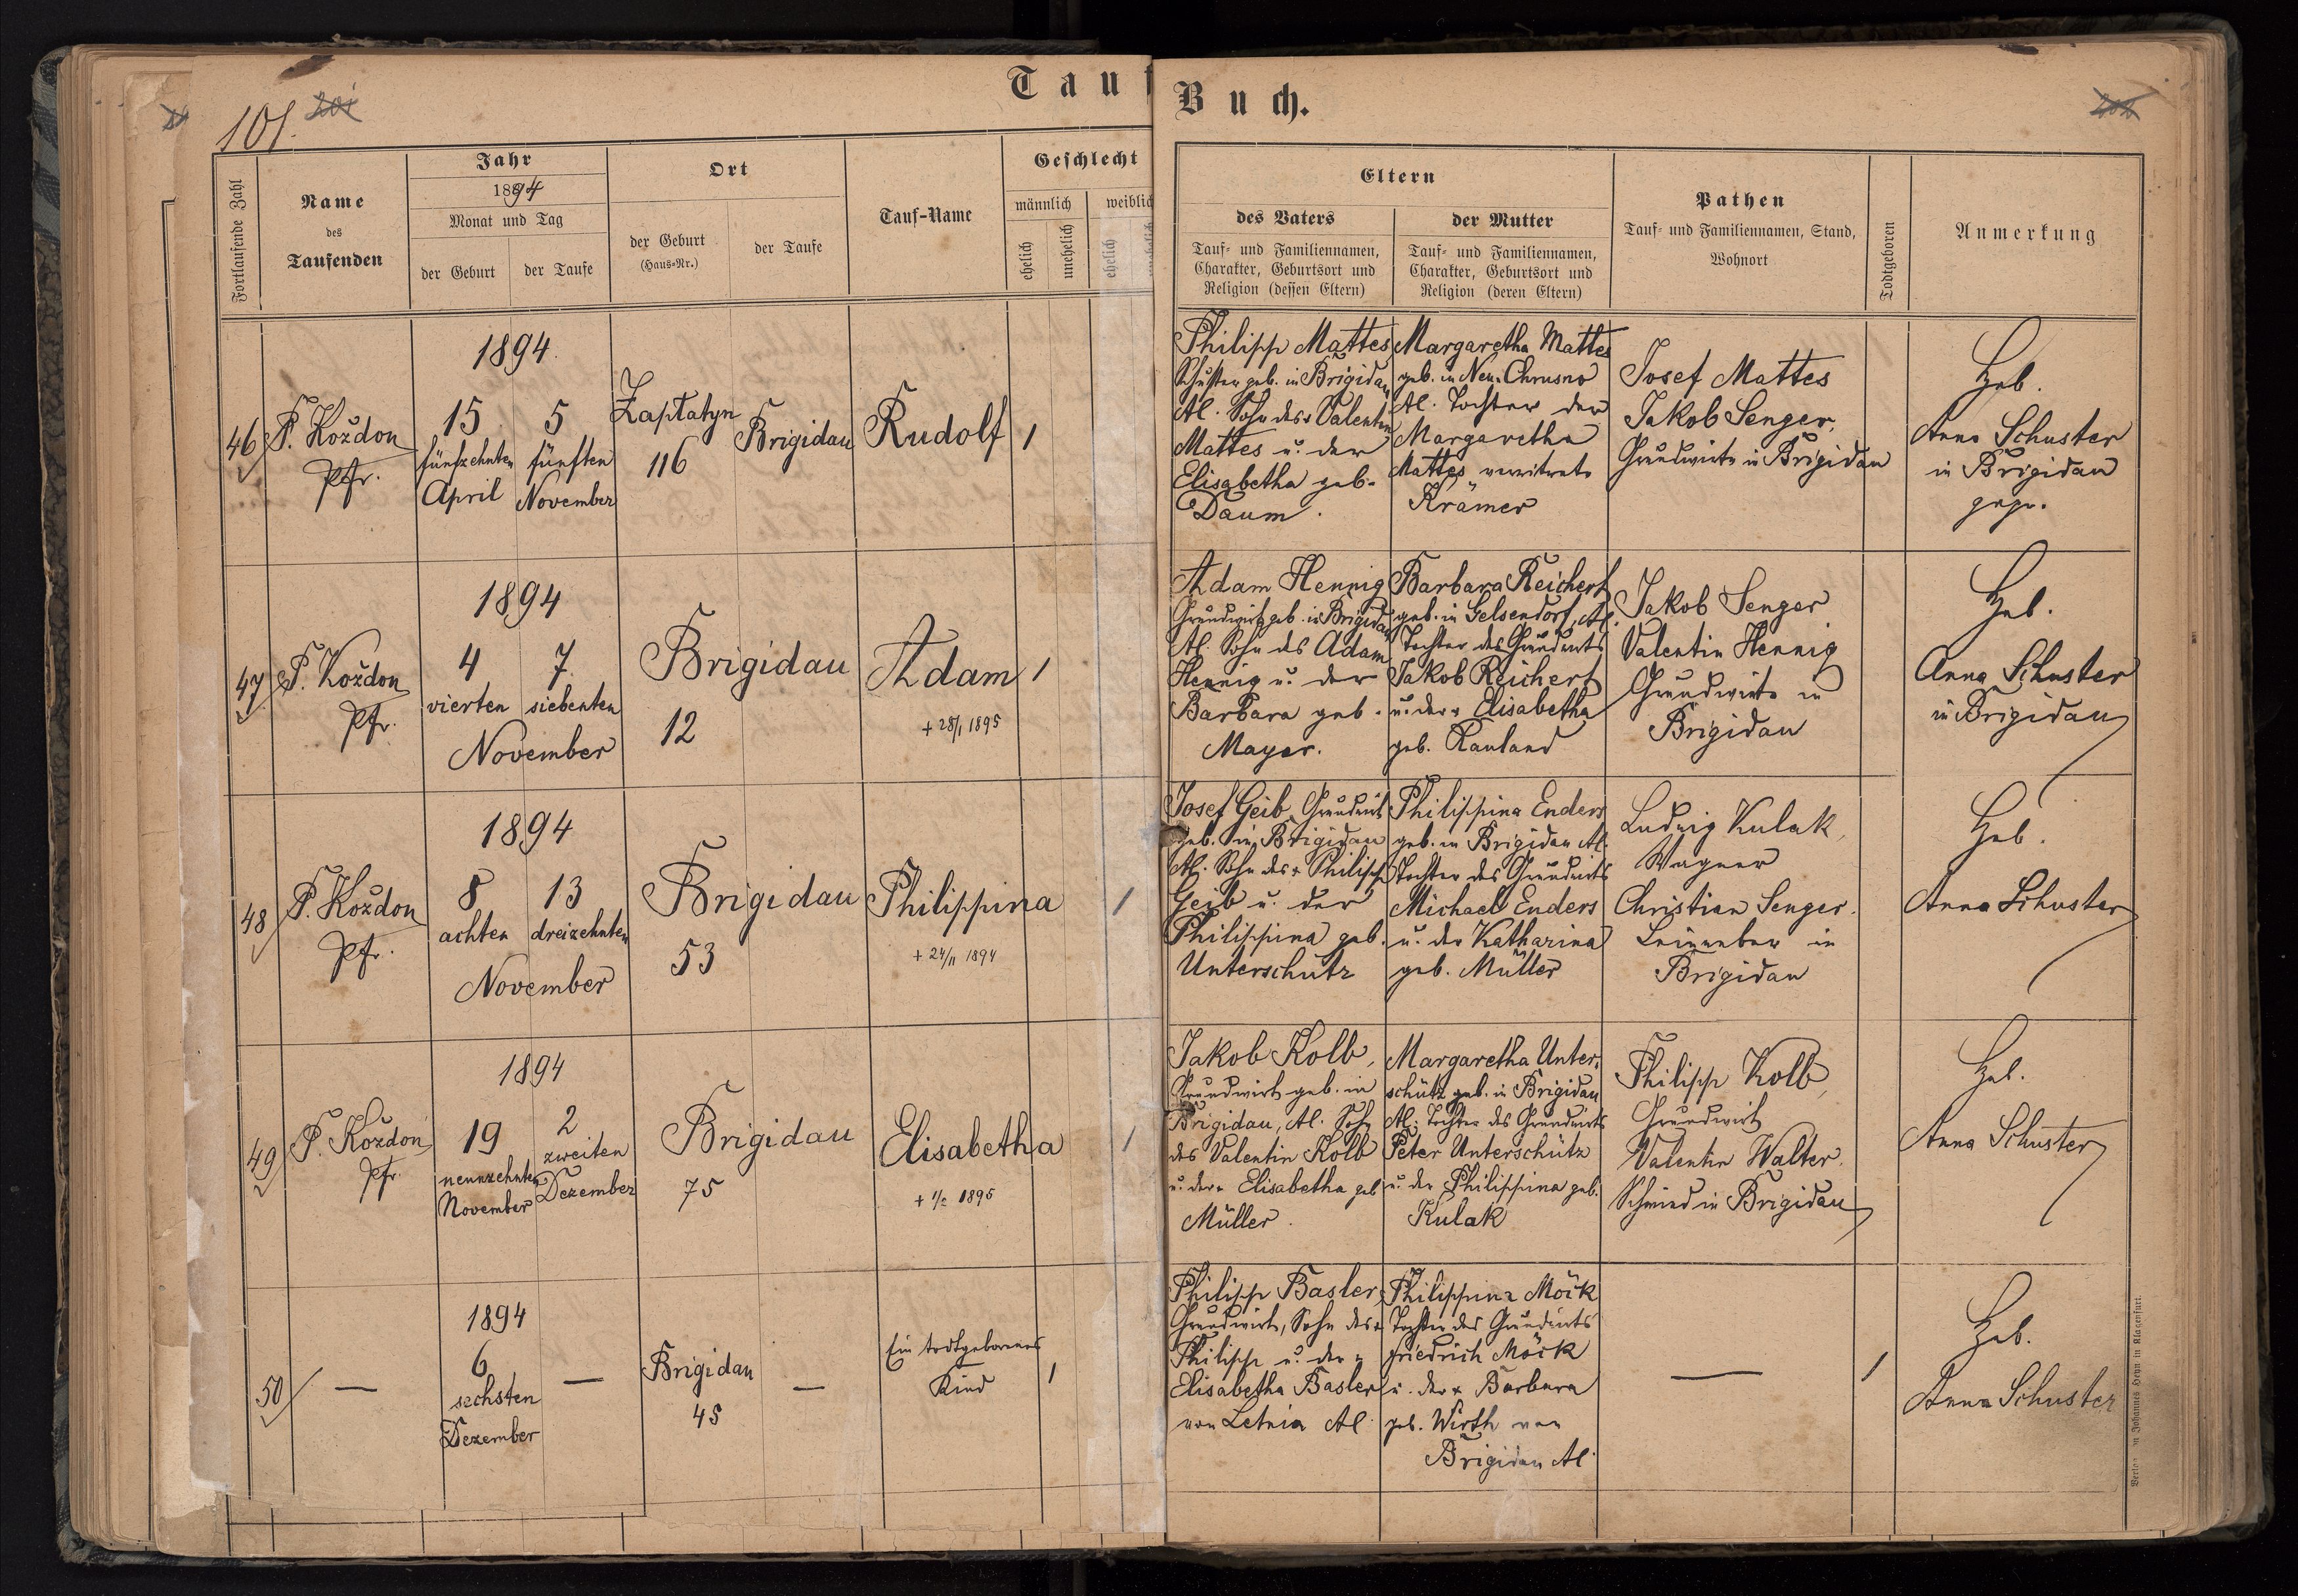 Tauf Buch.
101.
Fortlaufende Zahl
Name
des
Taufenden
Jahr
1894
Monat und Tag
der Geburt
der Taufe
Ort
der Geburt
(Haus=Nr.)
der Taufe
Tauf-Name
Geschlecht
männlich
weiblich
ehelich
unehelich
ehelich
Eltern
des Vaters
Tauf= und Familiennamen,
Charakter, Geburtsort und
Religion (dessen Eltern)
der Mutter
Tauf= und Familiennamen,
Charakter, Geburtsort und
Religion (deren Eltern)
Pathen
Tauf= und Familiennamen, Stand,
Wohnort
Todtgeboren
Anmerkung
46
P. Kożdon
Pfr.
1894
15
fünfzehnten
April
5
fünften
November
Zaptatyn
116
Brigidau
Rudolf
1
Philipp Mattes
Schuster geb. in Brigidau
Al. Sohn des + Valentin
Mattes u. der
Elisabetha geb.
Daum.
Margaretha Mattes
geb. in Neu-Chrusno
Al. Tochter der
Margaretha
Mattes
Krämer
Josef Mattes
Jakob Senger,
Grundwirte in Brigidau
Heb.
Anna Schuster
in Brigidau
gepr.
47
P. Kożdon
Pfr.
1894
4
vierten
7
siebenten
November
Brigidau
12
Adam
+ 28/1 1895
1
Adam Hennig
Grundwirt geb. in Brigidau
Al. Sohn des Adam
Hennig u. der
Barbara geb.
Mayer.
Barbara Reichert
geb. in Gelsendorf, Al.
Tochter des Grundwirts
Jakob Reichert
u. der + Elisabetha
geb. Rauland
Jakob Senger
Valentin Hennig
Grundwirte in
Brigidau
Heb.
Anna Schuster
in Brigidau
48
P. Kożdon
Pfr.
1894
8
achten
13
dreizehnten
November
Brigidau
53
Philippina
+ 24/11 1894
1
Josef Geib, Grundwirt
geb. in Brigidau
Al. Sohn des + Philipp
Geib u. der
Philippina geb.
Unterschütz
Philippina Enders
geb. in Brigidau Al.
Tochter des Grundwirts
Michael Enders
u. der Katharina
geb. Müller
Ludwig Kulak,
Wagner
Christian Senger.
Leinweber in
Brigidau
Heb.
Anna Schuster
49
P. Kożdon
Pfr.
1894
19
neunzehnten
November
2
zweiten
Dezember
Brigidau
75
Elisabetha
1895
1
Jakob Kolb,
Grundwirt geb. in
Brigidau, Al. Sohn
des Valentin Kolb
u. der + Elisabetha geb
Müller.
Margaretha Unter-
schütz geb. in Brigidau
Al. Tochter des Grundwirts
Peter Unterschütz
u. der Philippina geb.
Kulak
Philipp Kolb,
Grundwirt
Valentin Walter.
Schmied in Brigidau
Heb.
Anna Schuster
50
—
1894
6
sechsten
Dezember
—
Brigidau
45
—
Ein todtgeborenes
Kind
1
Philipp Basler,
Grundwirt, Sohn des +
Philipp u. der +
Elisabetha Basler
von Letnia Al.
Philippina Möck
Tochter des Grundwirts
Friedrich Möck
u. der + Barbara
geb. Wirth von
Brigidau Al.
—
1
Heb.
Anna Schuster
Verlag von Johannes Heyn in Klagenfurt.